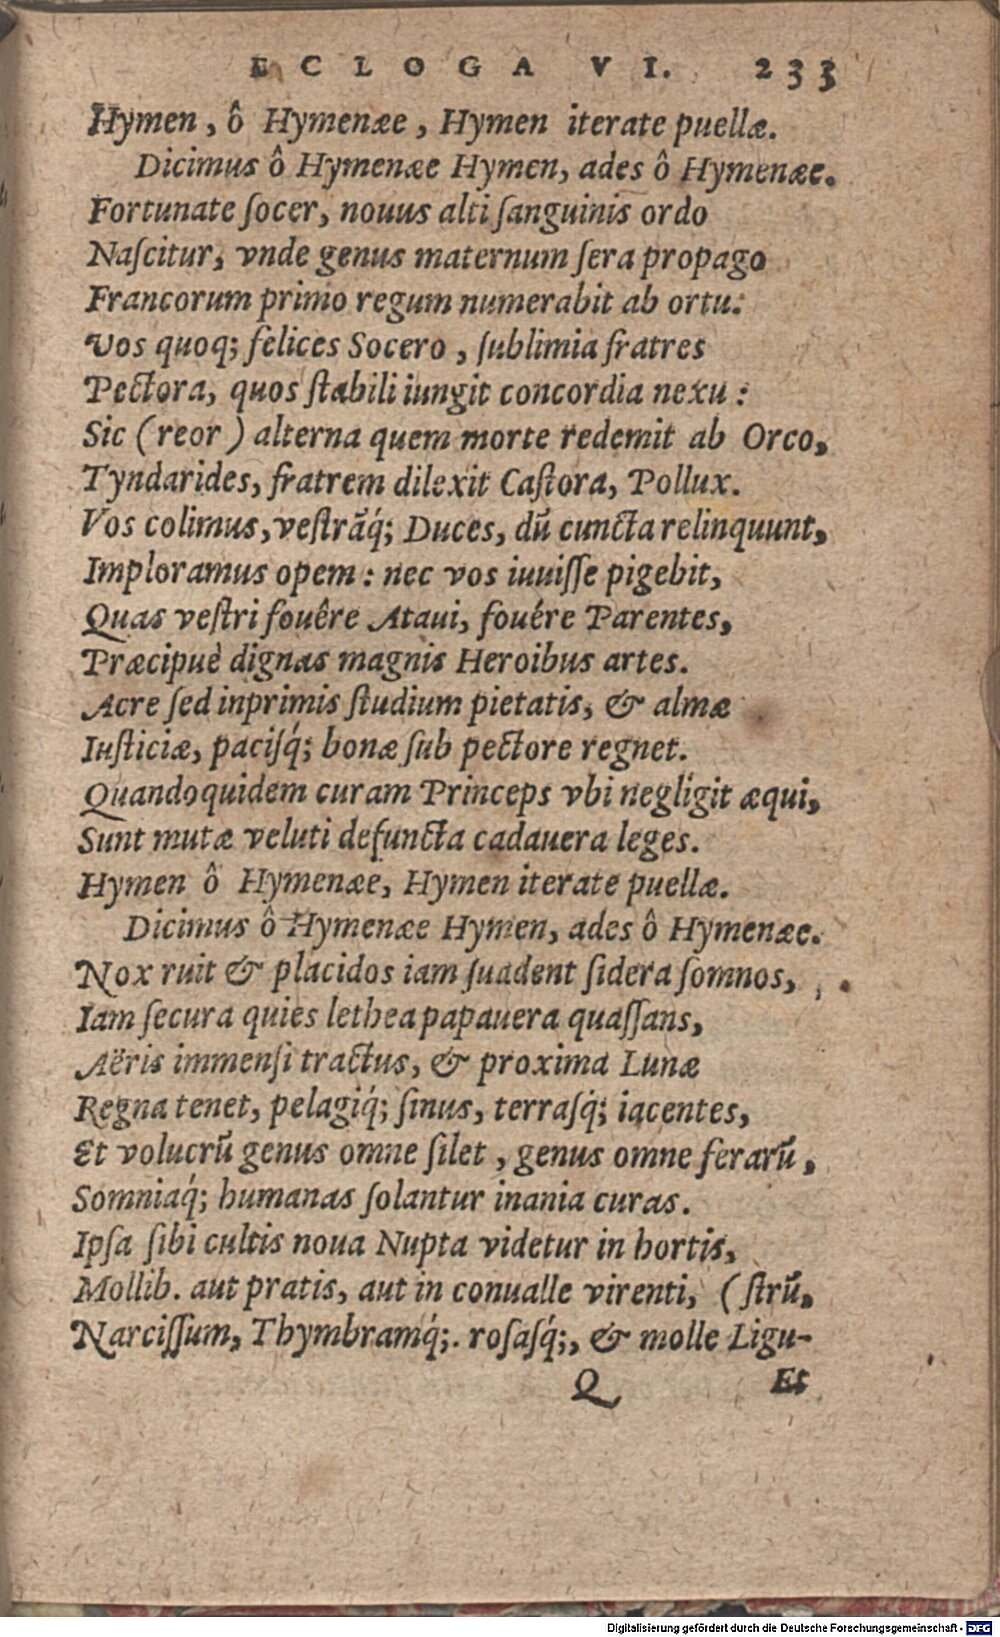 ECLOGA VI. 233
Hymen, ô Hymenæe, Hymen iterate puellæ.
Dicimus ô Hymenæe Hymen, ades ô Hymenæe.
Fortunate ſocer, nouus alti ſanguinis ordo
Naſcitur, vnde genus maternum ſera propago
Francorum primo regum numerabit ab ortu.
Vos quoq; felices Socero, ſublimia fratres
Pectora, quos ſtabili iungit concordia nexu:
Sic (reor) alterna quem morte redemit ab Orco,
Tyndarides, fratrem dilexit Caſtora, Pollux.
Vos colimus, veſtrāq́; Duces, dū cuncta relinquunt,
Imploramus opem: nec vos iuuiſſe pigebit,
Quas veſtri fouêre Ataui, fouére Parentes,
Præcipuè dignas magnis Heroibus artes.
Acre ſed inprimis ſtudium pietatis, & almæ
Iuſticiæ, paciſq́; bonæ ſub pectore regnet.
Quandoquidem curam Princeps vbi negligit æqui,
Sunt mutæ veluti defuncta cadauera leges.
Hymen ô Hymenæe, Hymen iterate puellæ.
Dicimus ô Hymenæe Hymen, ades ô Hymenæe.
Nox ruit & placidos iam ſuadent ſidera ſomnos,
Iam ſecura quies lethea papauera quaſſans,
Aëris immenſi tractus, & proxima Lunæ
Regna tenet, pelagiq́; ſinus, terraſq́; iacentes,
Et volucrū genus omne ſilet, genus omne ferarū,
Somniaq́; humanas ſolantur inania curas.
Ipſa ſibi cultis noua Nupta videtur in hortis,
Mollib. aut pratis, aut in conualle virenti, (ſtrū,
Narciſſum, Thymbramq́;. roſaſq́;, & molle Ligu-
Q Et
Digitalisierung gefördert durch die Deutsche Forschungsgemeinschaft - DFG